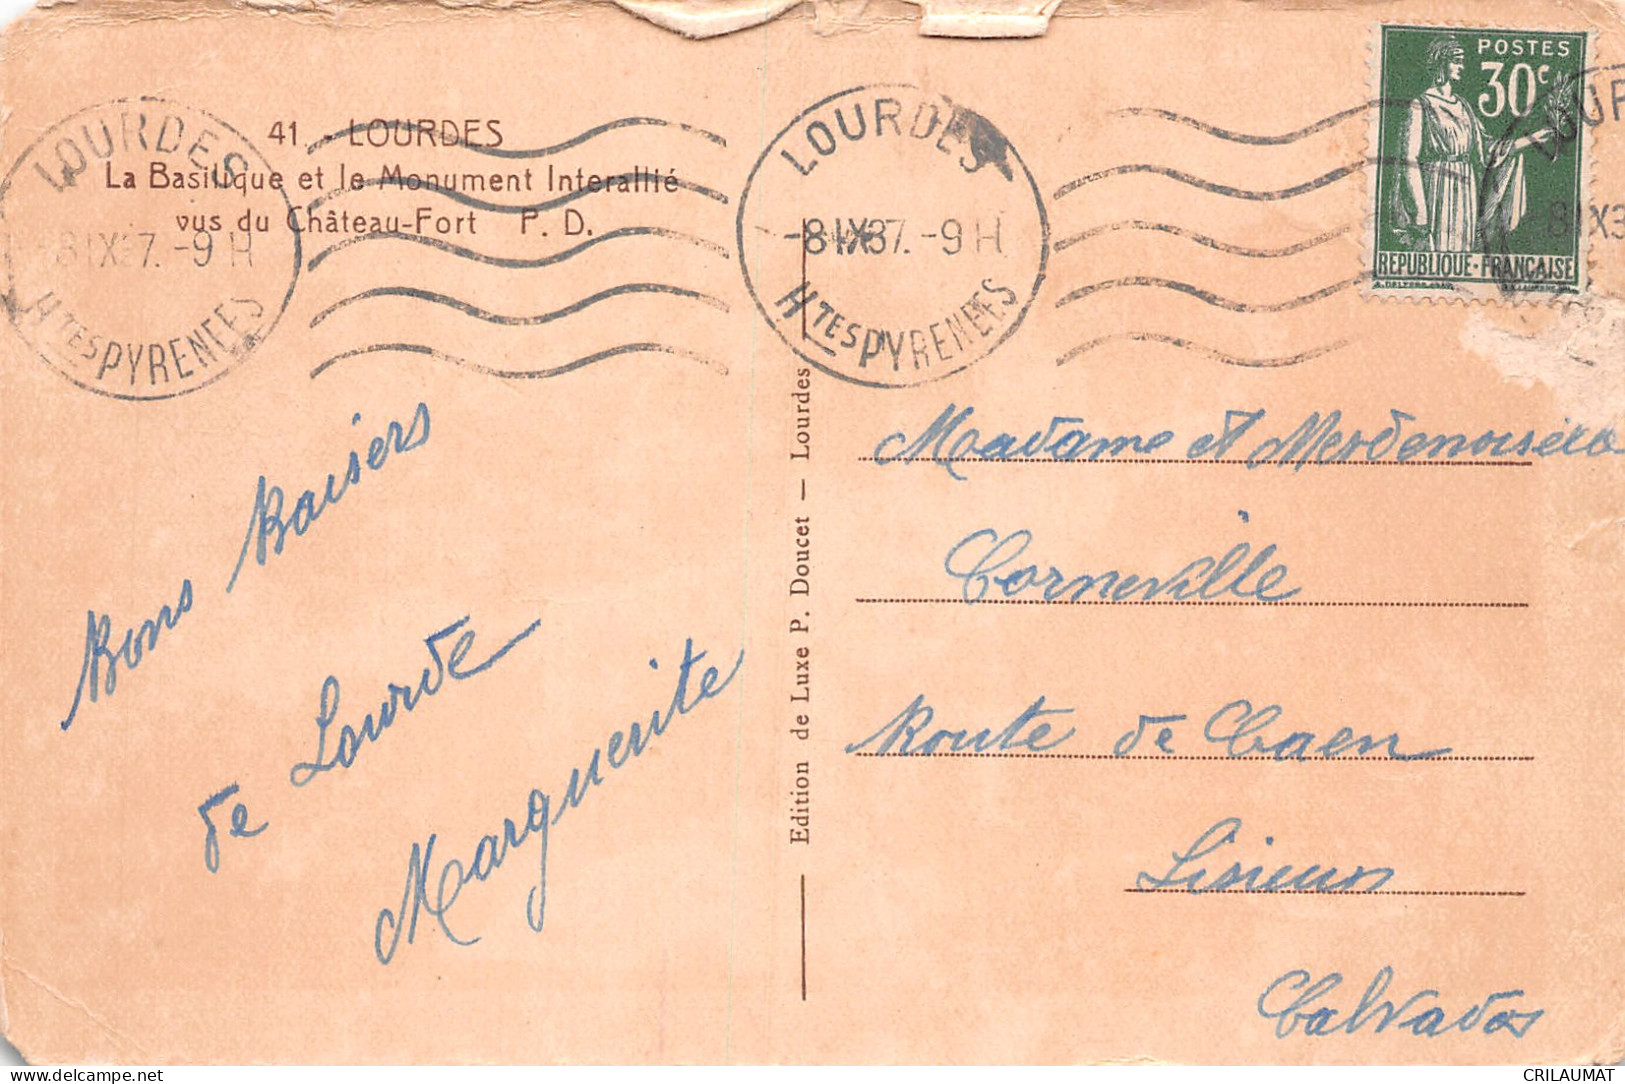 41. - LOURDES
La Basilique et le Monument Interallié
vus du Château-Fort P. D.
LOURDES
-8 IX 37. -9 H
HTES PYRENEES
LOURDES
-8 IX 37. -9 H
HTES PYRENEES
POSTES
30c
REPUBLIQUE-FRANÇAISE
Bons Baisers
de Lourde
Marguerite
Edition de Luxe P. Doucet — Lourdes
Madame et
Corneville
Route de Caen
Lisieux
Calvados
CRILAUMAT